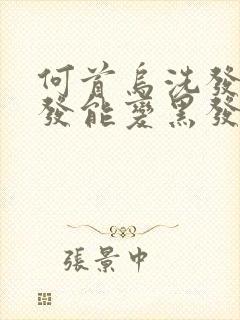 何首烏洗發
發能變黑發
張景中